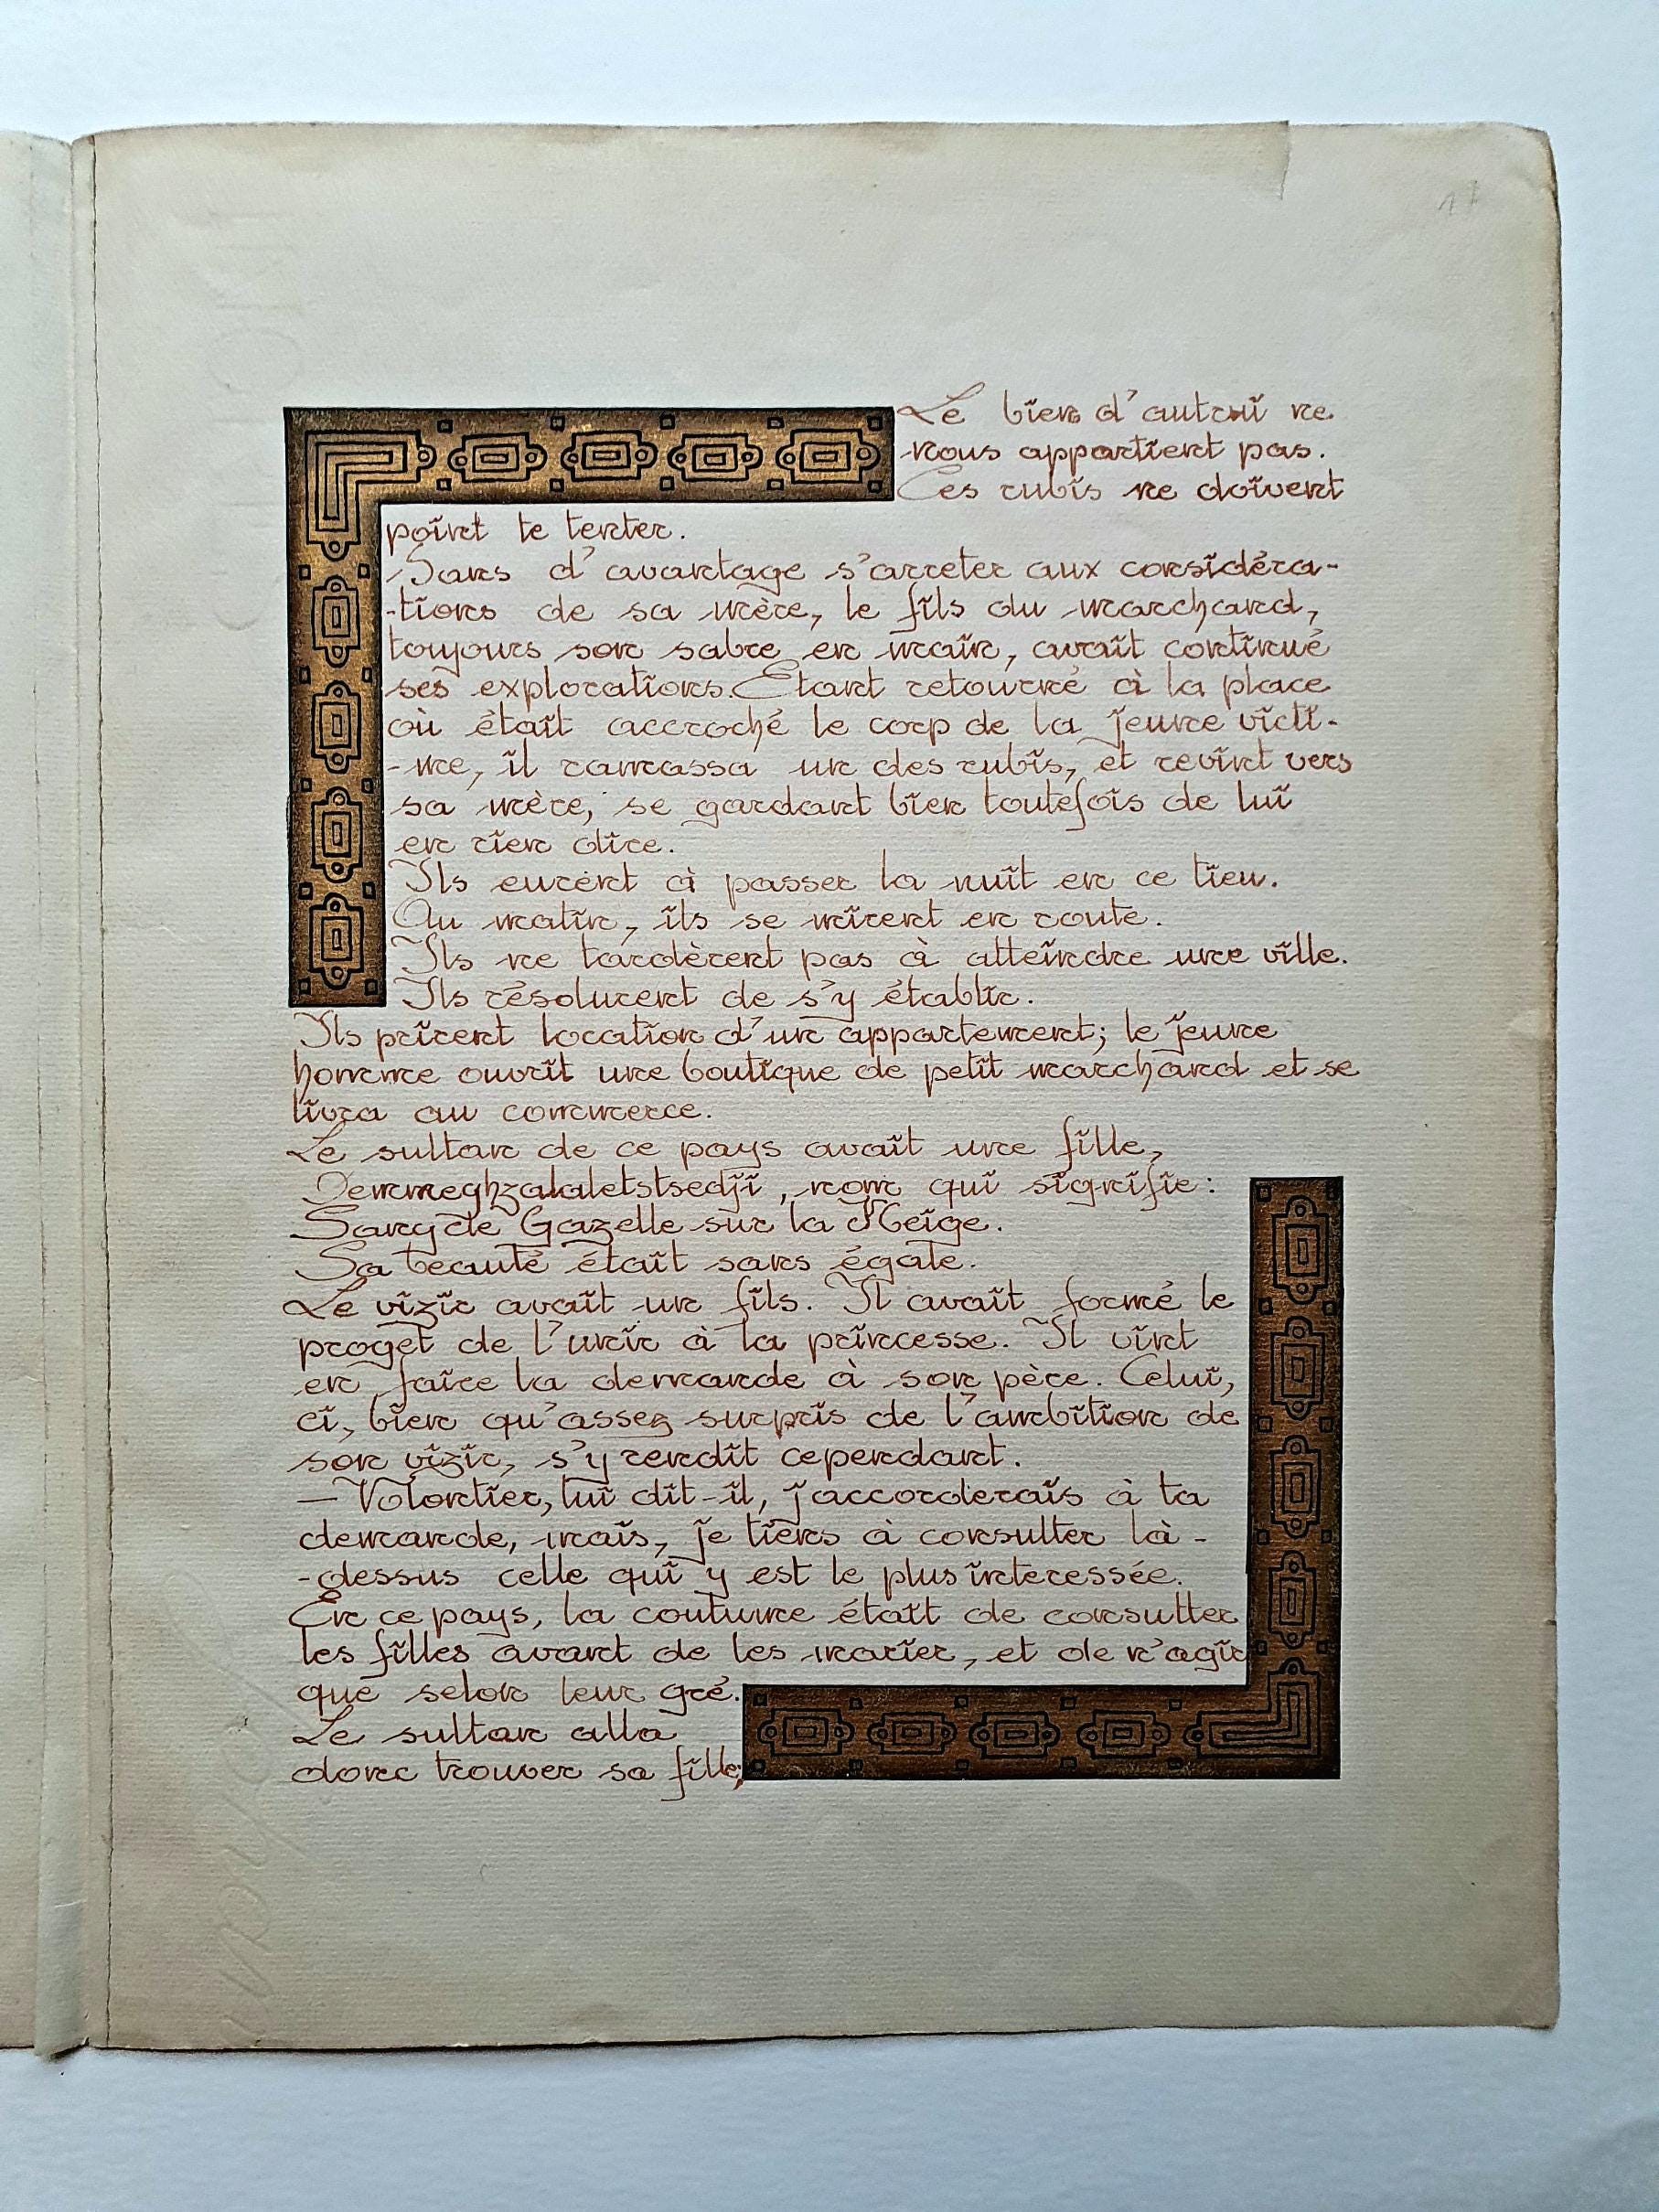 17
Le bien d'autrui ne
nous appartient pas.
Ces rubis ne doivent
point te tenter.
Sans d'avantage s'arreter aux considéra-
-tions de sa mère, le fils du marchand,
toujours son sabre en main, avait continué
ses explorations. Etant retourné à la place
où ètait accroché le corp de la jeune victi-
-me, il ramassa un des rubis, et revint vers
sa mère, se gardant bien toutefois de lui
en rien dire.
Ils eurent à passer la nuit en ce lieu.
Au matin, ils se mirent en route.
Ils ne tardèrent pas à atteindre une ville.
Ils résolurent de s'y établir.
Ils prirent location d'un appartement; le jeune
homme ouvrit une boutique de petit marchand et se
livra au commerce.
Le sultan de ce pays avait une fille,
Demmeghzalaletstsedji, nom qui signifie:
Sang de Gazelle sur la Neige.
Sa beauté était sans égale.
Le vizir avait un fils. Il avait formé le
proget de l'unir à la princesse. Il vint
en faire la demande à son père. Celui,
ci, bien qu'assez surpris de l'ambition de
son vizir, s'y rendit cependant.
— Volontier, lui dit-il, j'accorderais à ta
demande, mais, je tiens à consulter là-
-dessus celle qui y est le plus interessée.
En ce pays, la coutume était de consulter
les filles avant de les marier, et de n'agir
que selon leur gré.
Le sultan alla
donc trouver sa fille;